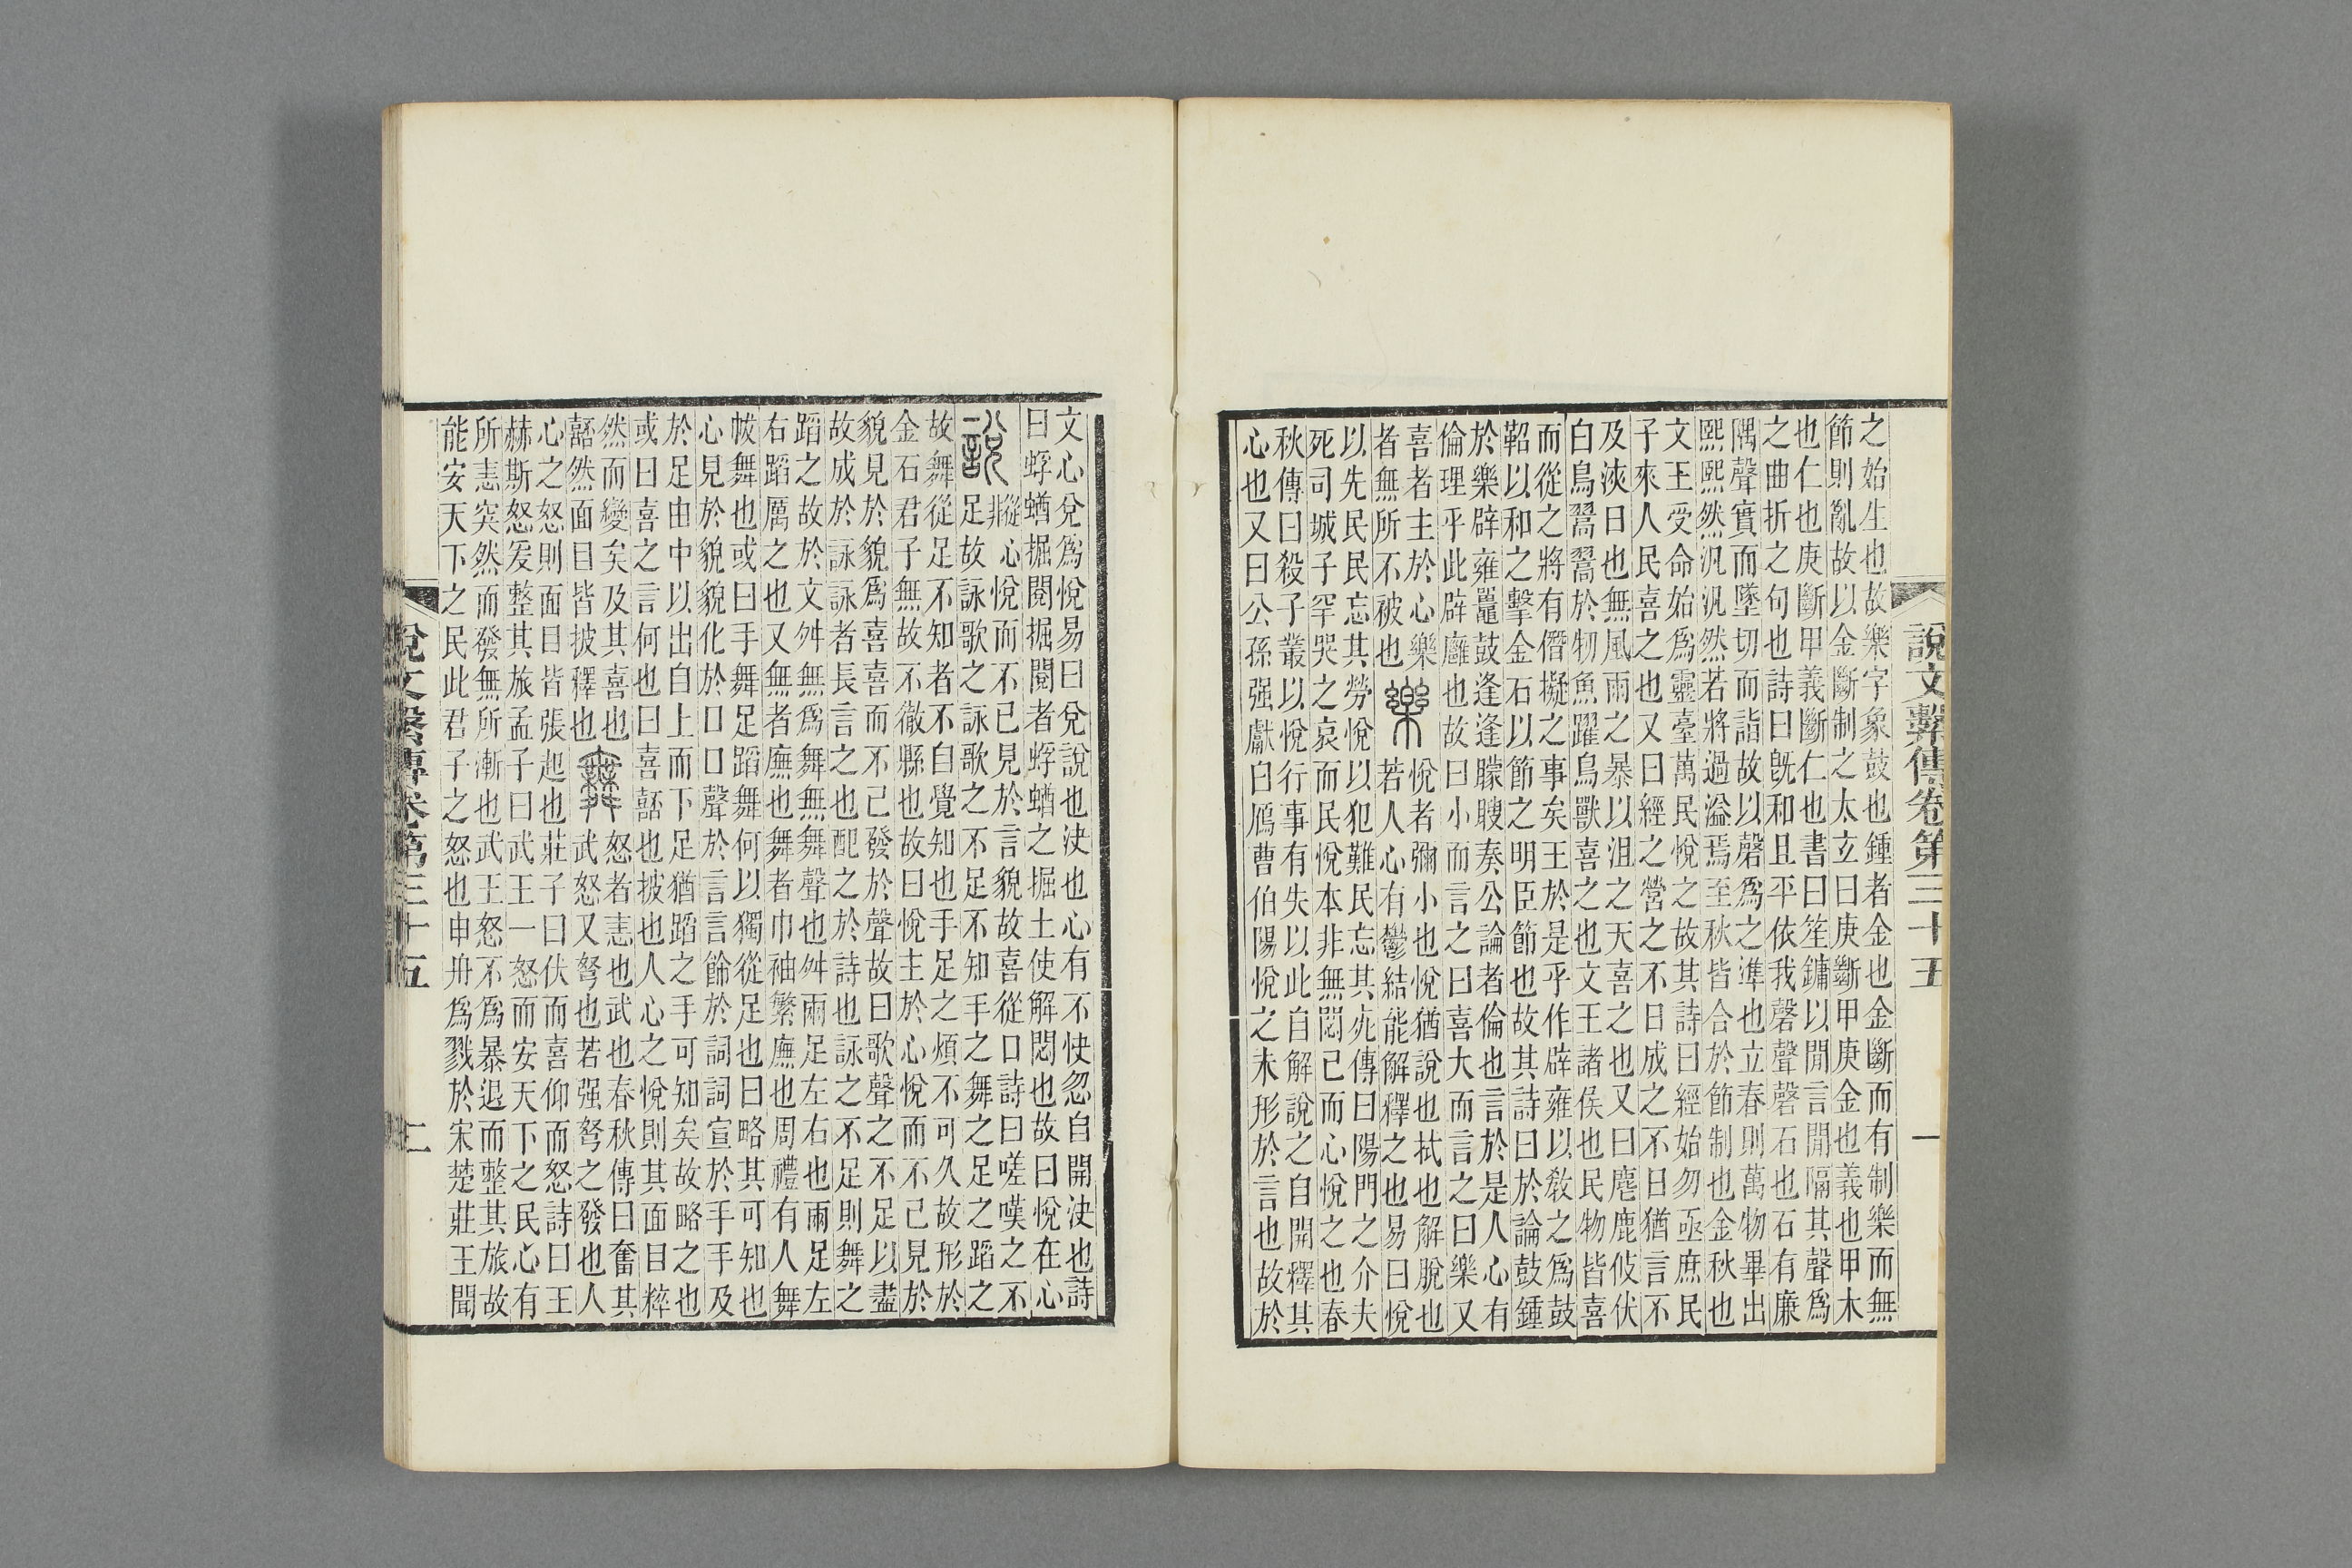 之始生也故樂字象鼓也鍾者金也金斷而有制樂而無
節則亂故以金斷制之太玄曰庚斷甲庚金也義也甲木
也仁也庚斷甲義斷仁也書曰笙鏞以閒言閒隔其聲爲
之曲折之句也詩曰旣和且平依我磬聲磬石也石有廉
隅聲實而墜切而詣故以磬爲之準也立春則萬物畢出
熙熙然汎汎然若將過溢焉至秋皆合於節制也金秋也
文王受命始爲靈臺萬民悅之故其詩曰經始勿亟庶民
子來人民喜之也又曰經之營之不日成之不日猶言不
及浹日也無風雨之暴以沮之天喜之也又曰麀鹿攸伏
白鳥翯翯於牣魚躍鳥獸喜之也文王諸侯也民物皆喜
而從之將有僭擬之事矣王於是乎作辟雍以敎之爲鼓
鞀以和之擊金石以節之明臣節也故其詩曰於論鼓鍾
於樂辟雍鼉鼓逢逢矇瞍奏公論者倫也言於是人心有
倫理乎此辟廱也故曰小而言之曰喜大而言之曰樂又
喜者主於心樂悅者彌小也悅猶說也拭也解脫也
者無所不被也樂若人心有鬱結能解釋之也易曰悅
以先民民忘其勞悅以犯難民忘其死傳曰陽門之介夫
死司城子罕哭之哀而民悅本非無悶已而心悅之也春
秋傳曰殺子叢以悅行事有失以此自解說之自開釋其
心也又曰公孫强獻白鴈曹伯陽悅之未形於言也故於
說文繫傳卷第三十五
一
文心兌爲悅易曰兌說也決也心有不快忽自開決也詩
曰蜉蝤掘閱掘閱者蜉蝤之掘土使解悶也故曰悅在心
說非縱心悅而不已見於言貌故喜從口詩曰嗟嘆之不
足故詠歌之詠歌之不足不知手之舞之足之蹈之
故舞從足不知者不自覺知也手足之煩不可久故形於
金石君子無故不徹縣也故曰悅主於心悅而不已見於
貌見於貌爲喜喜而不已發於聲故曰歌聲之不足以盡
故成於詠詠者長言之也配之於詩也詠之不足則舞之
蹈之故於文舛無爲舞無舞聲也舛兩足左右也兩足左
右蹈厲之也又無者廡也舞者巾袖繁廡也周禮有人舞
帗舞也或曰手舞足蹈舞何以獨從足也曰略其可知也
心見於貌貌化於口口聲於言言飾於詞詞宣於手手及
於足由中以出自上而下足猶蹈之手可知矣故略之也
或曰喜之言何也曰喜嚭也披也人心之悅則其面目粹
然而變矣及其喜也怒者恚也武也春秋傳曰奮其
嚭然面目皆披釋也武怒又弩也若强弩之發也人
心之怒則面目皆張起也莊子曰伏而喜仰而怒詩曰王
赫斯怒爰整其旅孟子曰武王一怒而安天下之民心有
所恚突然而發無所漸也武王怒不爲暴退而整其旅故
能安天下之民此君子之怒也申舟爲戮於宋楚莊王聞
說文繫傳卷第三十五
二